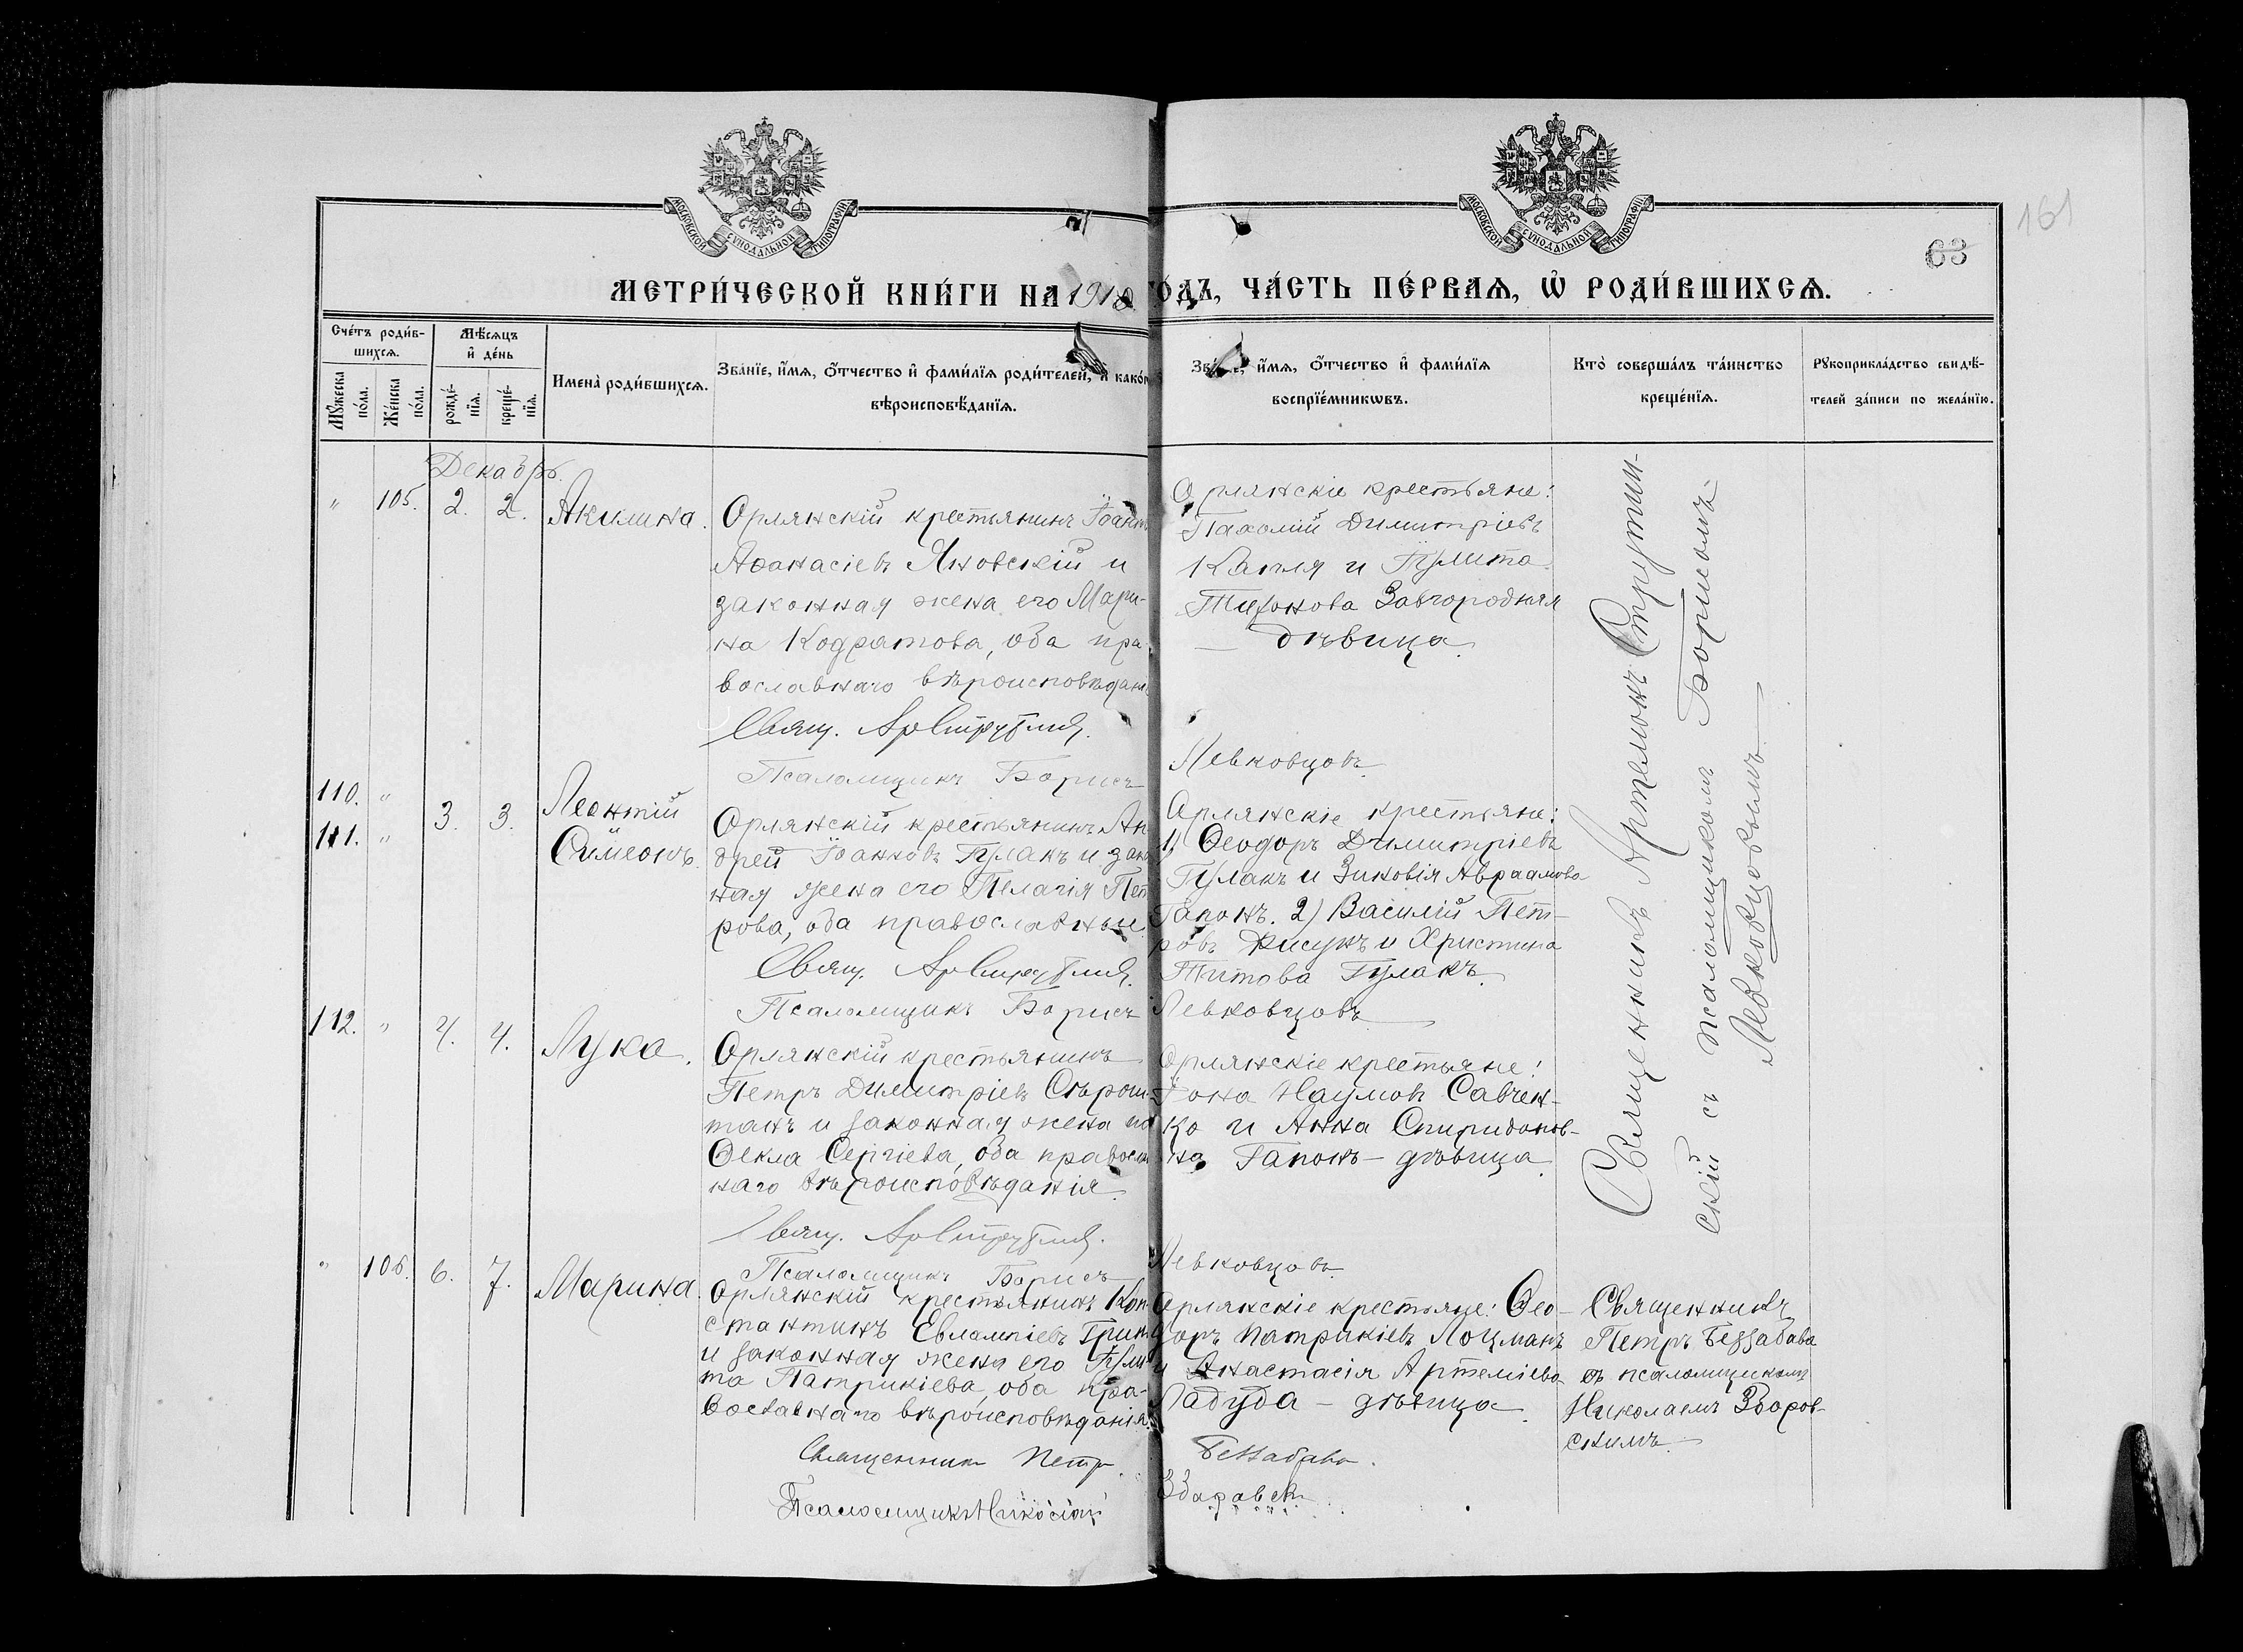 МОСКОВСКОЙ СУНОДАЛЬНОЙ ТИПОГРАФІИ
МОСКОВСКОЙ СУНОДАЛЬНОЙ ТИПОГРАФІИ
161
63
МЕТРИ́ЧЕСКОЙ КНИ́ГИ НА 1910 ГО́ДЪ, ЧА́СТЬ ПЕ́РВАѦ, Ѡ҆ РОДИ́ВШИХСѦ.
Сче́тъ роди́в-
шихсѧ.
Мꙋ́жеска по́ла.
Же́нска по́ла.
Мѣ́сѧцъ
и҆ де́нь
рожде́-
нїѧ.
креще́-
нїѧ.
Имена̀ роди́вшихсѧ.
Зва́нїе, и҆́мѧ, ѻ҆́тчество и҆ фами́лїѧ роди́телей, и҆ како́г
вѣроисповѣ́данїѧ.
Зва́нїе, и҆́мѧ, ѻ҆́тчество и҆ фами́лїѧ
воспрїе́мникѡвъ.
Кто̀ соверша́лъ та́инство
креще́нїѧ.
Рꙋкоприкла́дство свидѣ́-
телей за́писи по жела́нїю.
Декабрь.
" 105. 2. 2. Акилина.
Орлянскій крестьянинъ Іоанн
Аѳанасіевъ Яновскій и
законная жена его Мари-
на Кодратова, оба пра-
вославнаго вѣроисповѣдан
Свящ. Ар Струтинс.
Псаломщикъ Борисъ
Орлянскіе крестьяне:
Пахомій Димитріевъ
Капля и Іулита
Тихонова Завгородняя
— дѣвица.
Левковцовъ.
Священникъ Артемонъ Струтин-
скій съ псаломщикомъ Борисомъ
Левковцовымъ —
110. " 3. 3. Леонтій
111. " Симеонъ.
Орлянскій крестьянинъ Ан
дрей Іоанновъ Гулакъ и зако
ная жена его Пелагія Пет
рова, оба православные.
Свящ. Ар Струтинс.
Псаломщикъ Борисъ
Орлянскіе крестьяне:
1) Ѳеодоръ Димитріевъ
Гулакъ и Зиновія Авраамова
Гапонъ. 2) Василій Пет-
ровъ Фисунъ и Христина
Титова Гулакъ.
Левковцовъ
112. " 4. 4. Лука.
Орлянскій крестьянинъ
Петръ Димитріевъ Сѣрош-
танъ и законная жена его
Ѳекла Сергіева, оба правосла
наго вѣроисповѣданія.
Свящ. Ар Струтинс.
Псаломщикъ Борисъ
Орлянскіе крестьяне:
Іона Наумовъ Савчен-
ко и Анна Спиридонов-
на Гапонъ — дѣвица.
Левковцовъ.
" 106. 6. 7. Марина.
Орлянскій крестьянинъ Кон-
стантинъ Евлампіевъ Грин
и законная жена его Іули
та Патрикіева, оба пра-
вославнаго вѣроисповѣданія.
Священникъ Петр
Псаломщикъ Николай
Орлянскіе крестьяне: Ѳео-
доръ Патрикіевъ Лоцманъ
и Анастасія Артеміева
Ладуба — дѣвица.
Беззабава.
Здоровск
Священникъ
Петръ Беззабава
съ псаломщикомъ
Николаемъ Здоров-
скимъ.